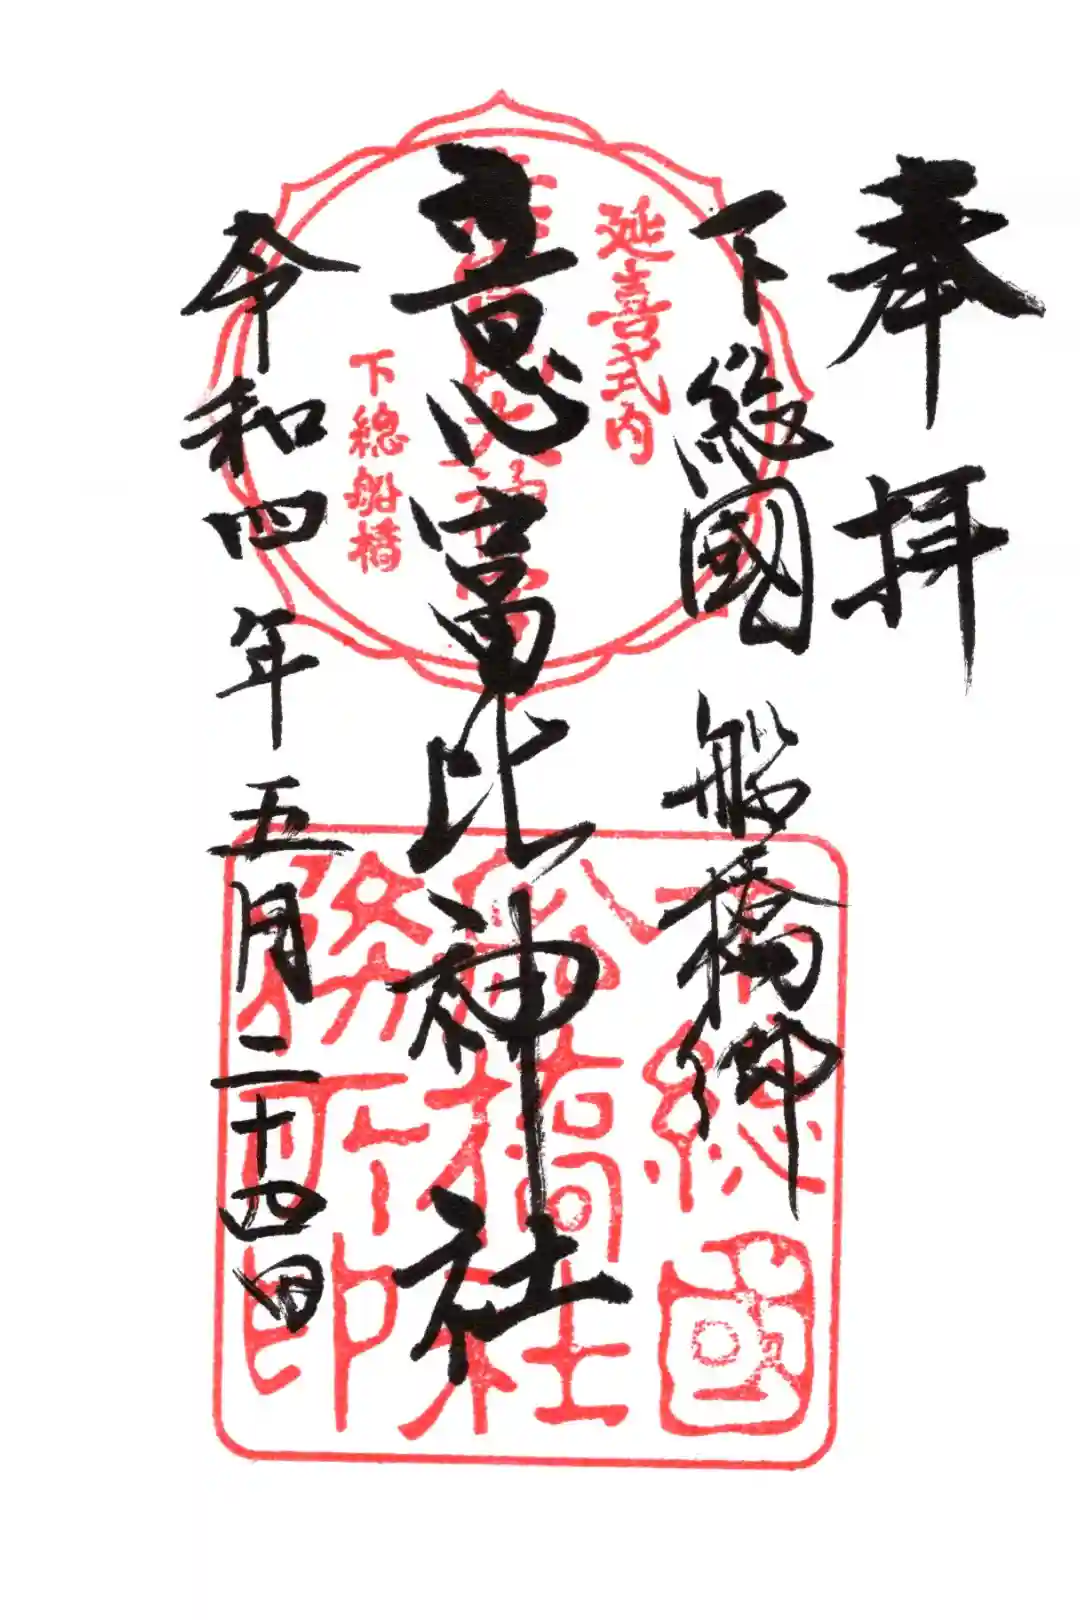 奉拝
下総國 船橋郷
意富比神社
令和四年五月二十四日
延喜式内
下總船橋
下總國
船橋社
務所印